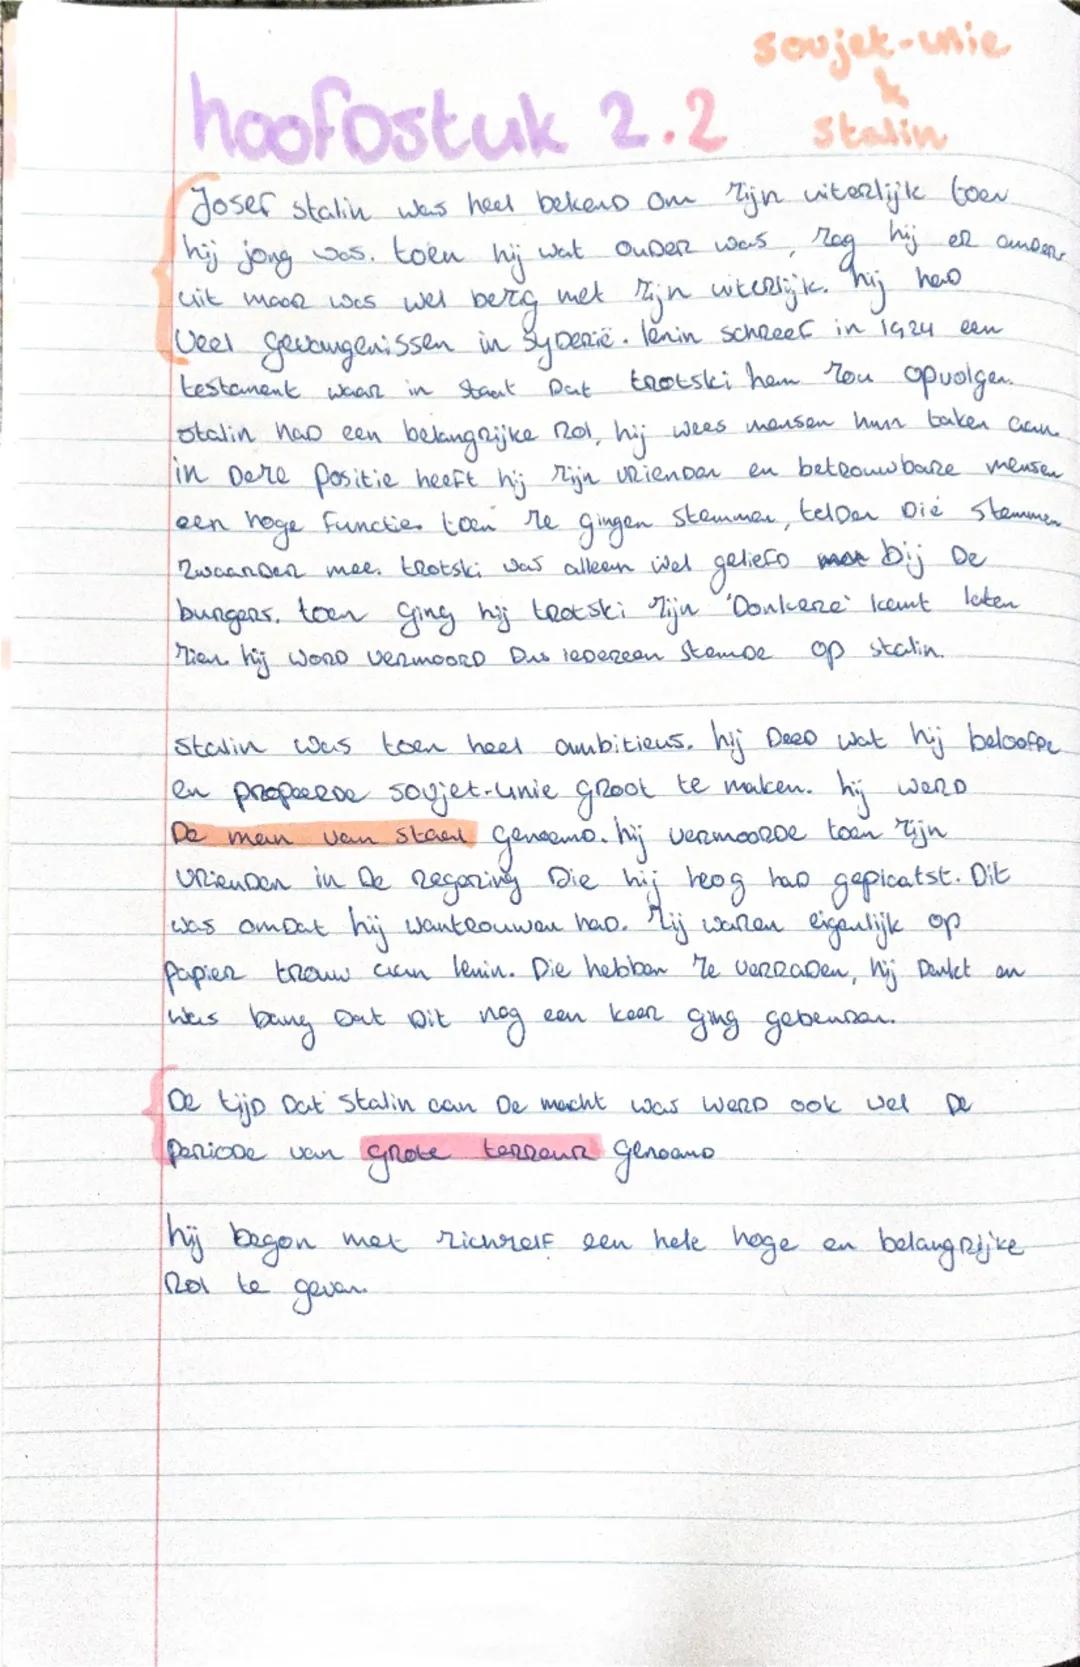 sovjet-unie
&
hoofdstuk 2.2 stalin
Josef stalin was heel bekend om zijn uiterlijk toen
hij jong was. toen hij wat ouder was, zag hij er anders
uit maar was wel bezig met zijn uiterlijk. hij had
veel gevangenissen in Syberië. lenin schreef in 1924 een
testament waar in staat Dat trotski hem zou opvolgen.
stalin had een belangrijke Rol, hij wees mensen hun taken aan.
in Deze positie heeft hij zijn vrienden en betrouwbare mensen
een hoge functie. toen ze gingen stemmen, telden Die stemmen
zwaarder mee. trotski was alleen wel geliefd bij De
burgers. toen ging hij trotski zijn 'Donkere' kant laten
zien. hij word vermoord Dus iedereen stemde op stalin.
stalin was toen heel ambitieus. hij Deed wat hij beloofde
en probeerde sovjet-unie groot te maken. hij werd
De man van staal genoemd. hij vermoorde toen zijn
vrienden in De regering Die hij hoog had geplaatst. Dit
was omdat hij wantrouwen had. Zij waren eigenlijk op
papier trouw aan lenin. Die hebben ze verraden, hij Denkt en
was bang Dat Dit nog een keer ging gebeuren.
De tijd Dat stalin aan De macht was werd ook wel De
periode van grote terreur genoemd
hij begon met zichzelf een hele hoge en belangrijke
Rol te geven.